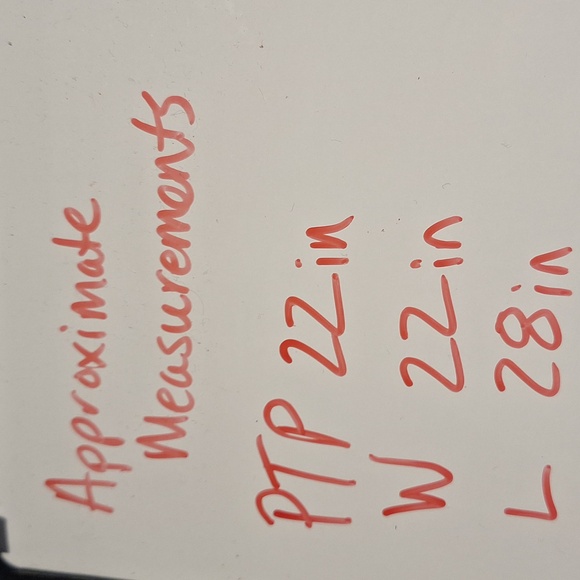 Approximate
Measurements
PTP 22in
W 22in
L 28in